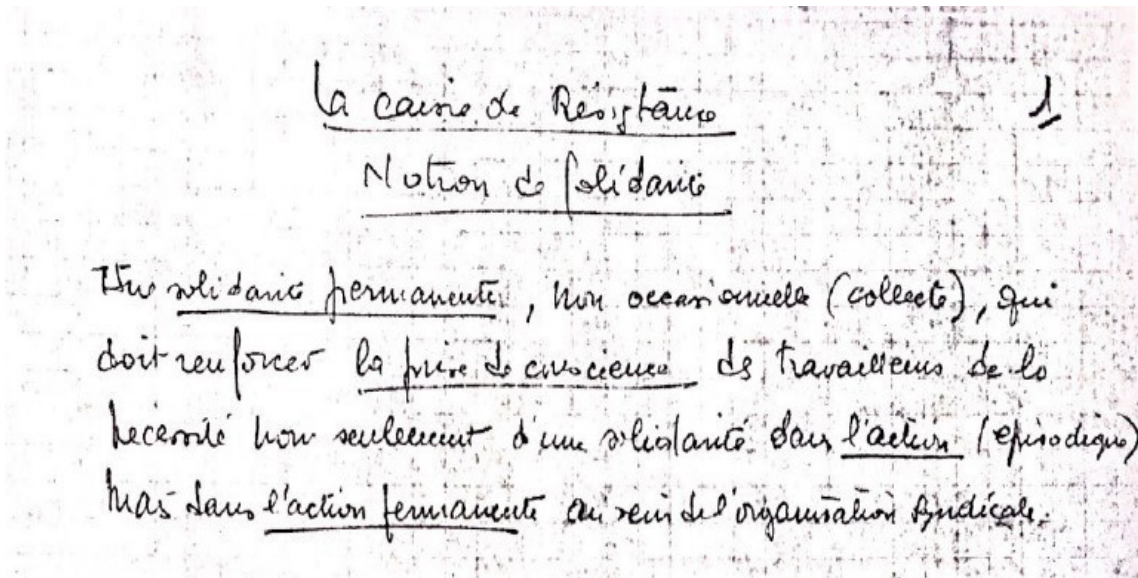 La caisse de Résistance
1
Notion de solidarité
Une solidarité permanente, non occasionnelle (collecte), qui
doit renforcer la prise de conscience des travailleurs de la
nécessité non seulement d'une solidarité dans l'action (épisodique)
mais dans l'action permanente au sein de l'organisation syndicale.